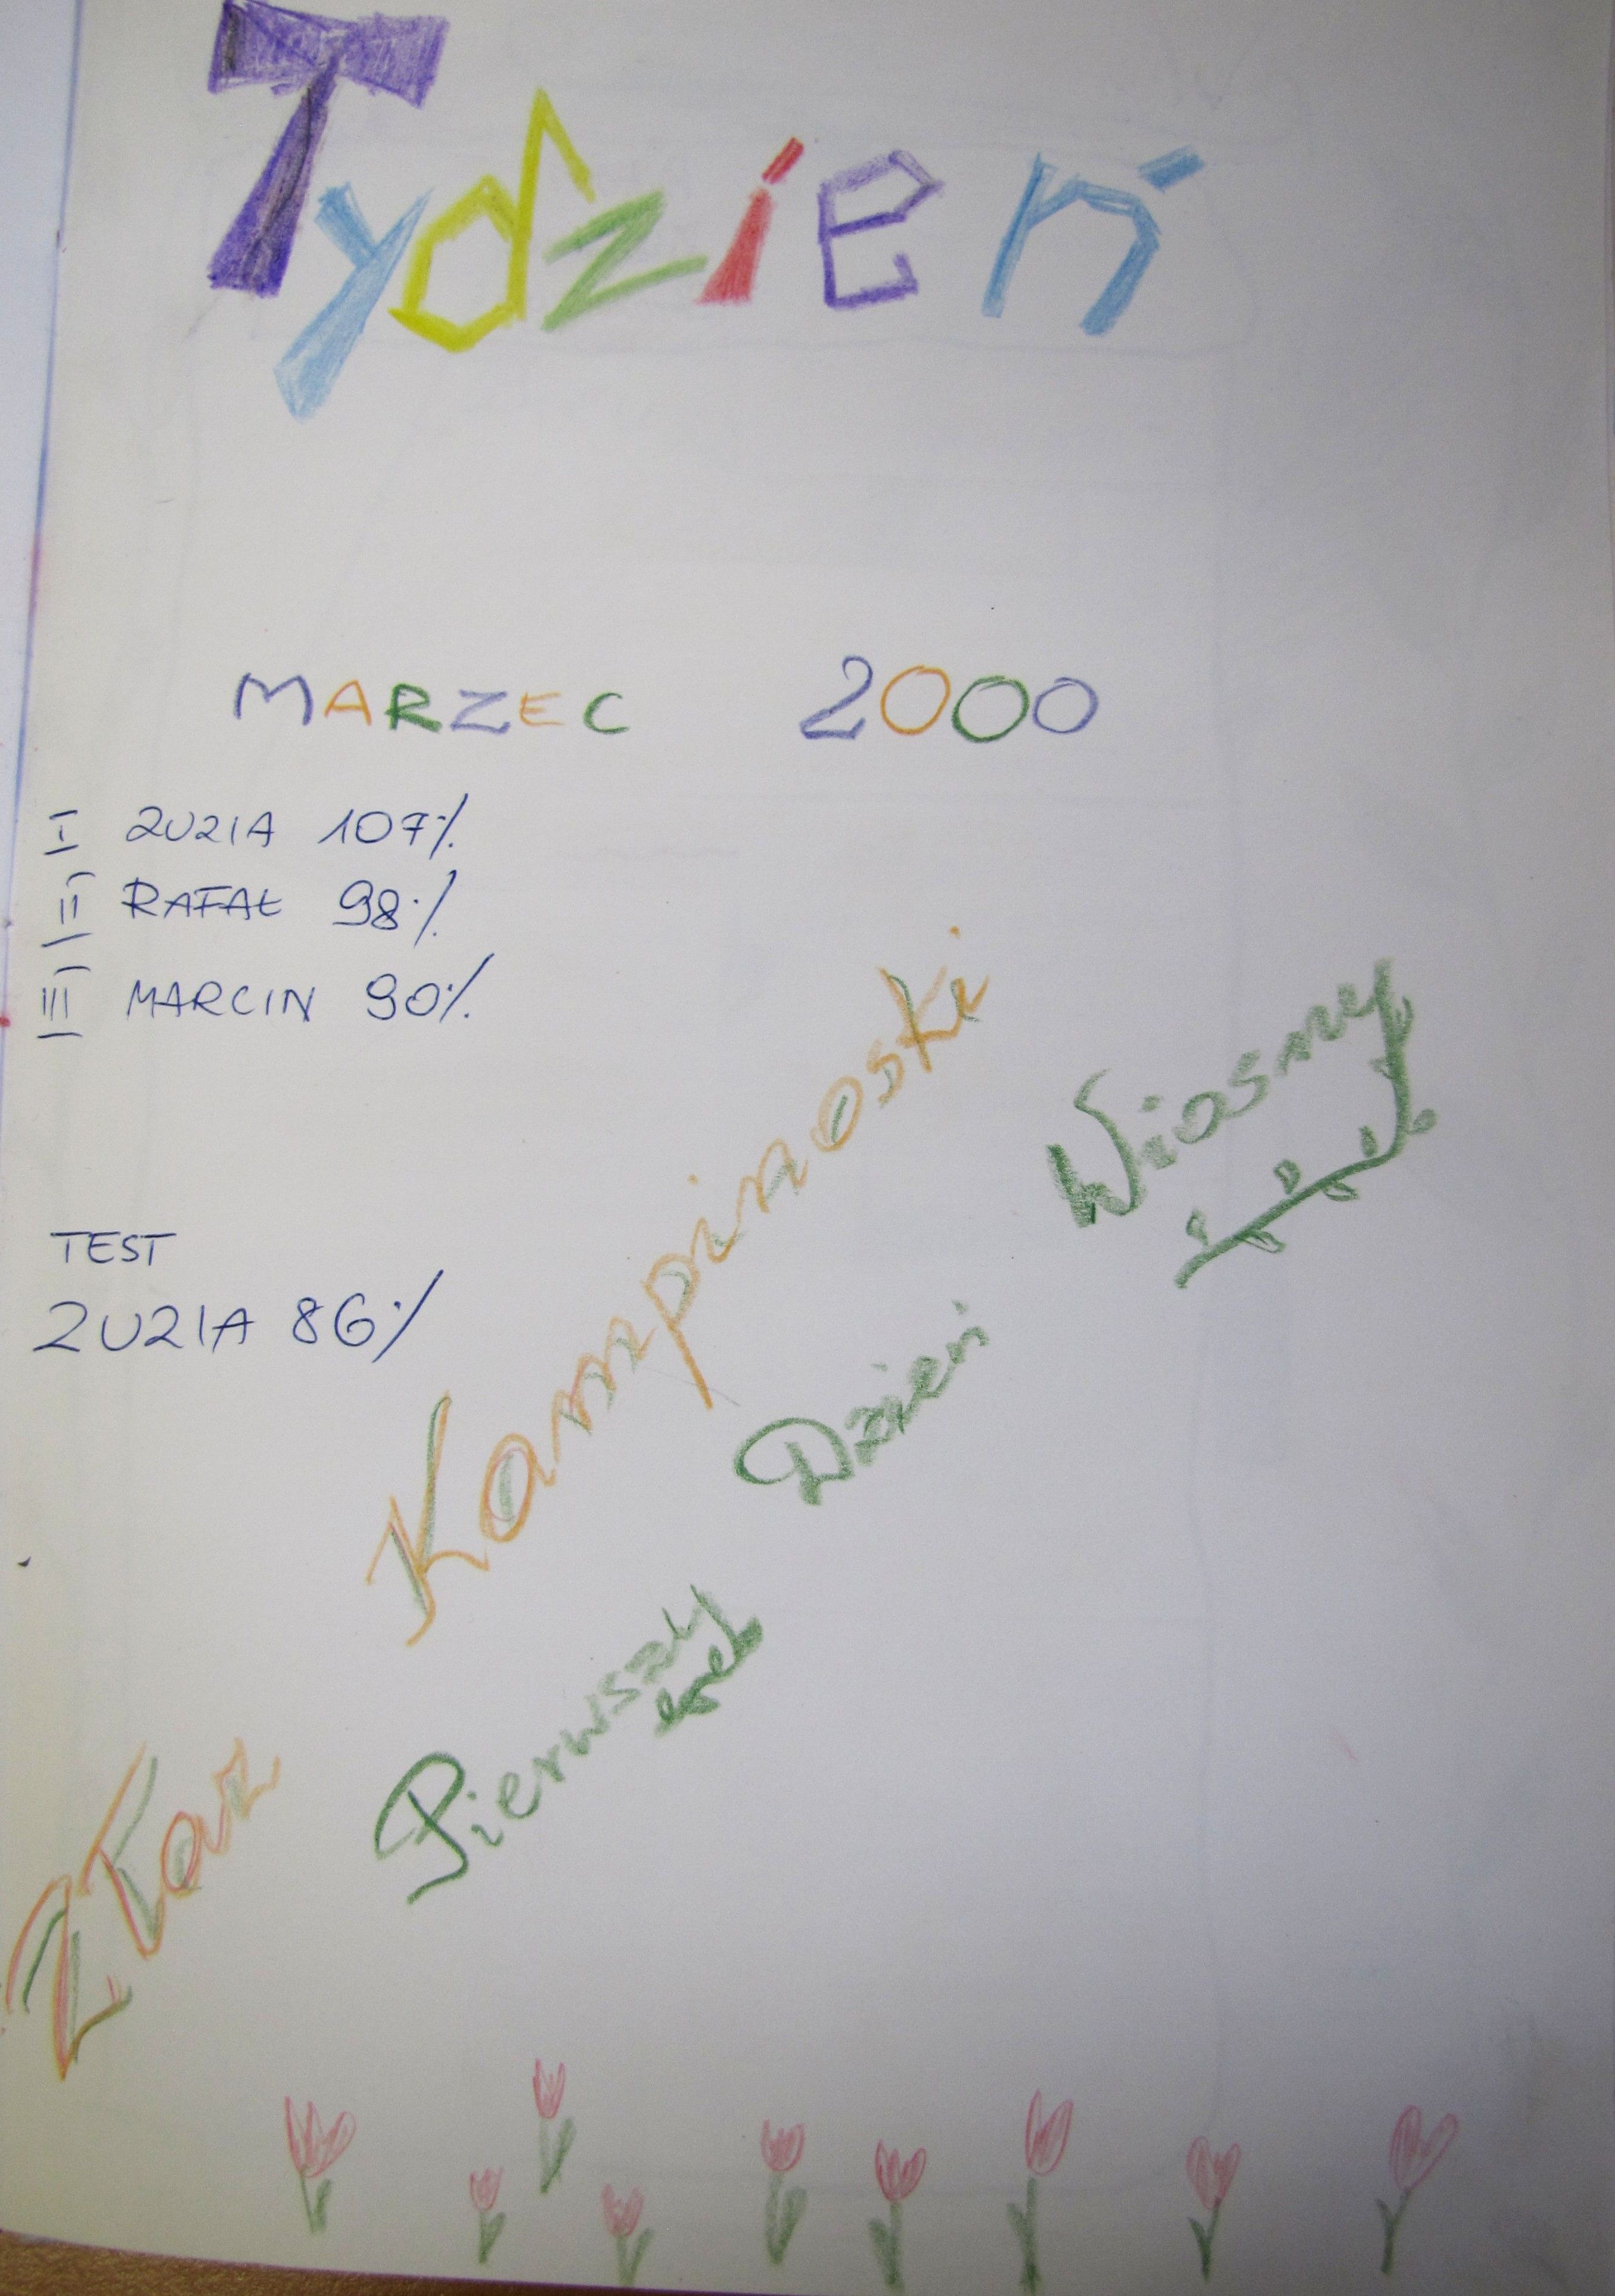 Tydzień
MARZEC 2000
I ZUZIA 107%
II RAFAŁ 98%
III MARCIN 90%
TEST
ZUZIA 86%
Złaz Kampinoski
Pierwszy Dzień Wiosny